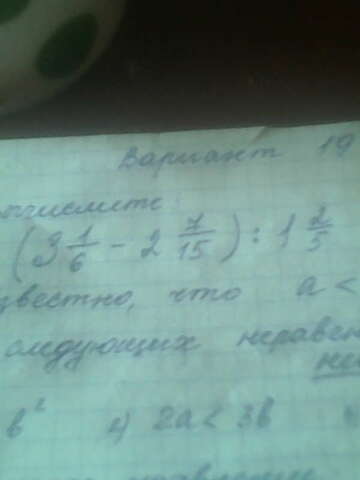 Вариант 19
ычислите:
(3 1/6 - 2 7/15) : 1 2/5
звестно, что a <
следующих неравен
не
b² 4) 2a < 3b